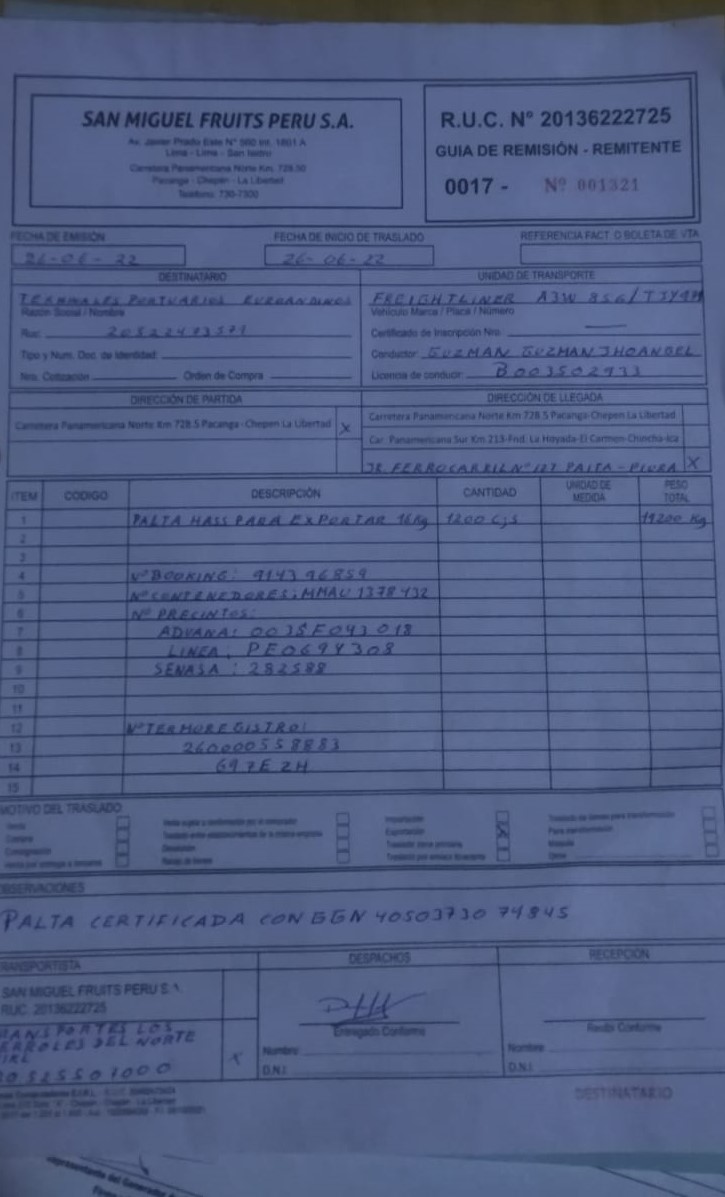 SAN MIGUEL FRUITS PERU S.A.
Av. Javier Prado Este N° 560 Int. 1801 A
Lima - Lima - San Isidro
Carretera Panamericana Norte Km. 728.50
Pacanga - Chepén - La Libertad
Teléfono: 730-7300
R.U.C. N° 20136222725
GUIA DE REMISIÓN - REMITENTE
0017 - Nº 001321
FECHA DE EMISIÓN
26-06-22
FECHA DE INICIO DE TRASLADO
26-06-22
REFERENCIA FACT. O BOLETA DE VTA
DESTINATARIO
TERMINALES PORTUARIOS EUROANDINOS
Razón Social / Nombre
Ruc: 20522473571
Tipo y Num. Doc. de Identidad:
Nro. Cotización Orden de Compra
UNIDAD DE TRANSPORTE
FREIGHTLINER A3W 856/
Vehículo Marca / Placa / Número
Certificado de Inscripción Nro.
Conductor GUZMAN GUZMAN JHOANDEL
Licencia de conducir B003502933
DIRECCIÓN DE PARTIDA
Carretera Panamericana Norte Km 728.5 Pacanga - Chepen La Libertad X
DIRECCIÓN DE LLEGADA
Carretera Panamericana Norte Km 728.5 Pacanga-Chepen La Libertad
Car. Panamericana Sur Km 213-Fnd. La Hoyada-El Carmen-Chincha-Ica
JR. FERROCARRIL Nº 127 PAITA - PIURA X
ITEM CODIGO DESCRIPCIÓN CANTIDAD UNIDAD DE MEDIDA PESO TOTAL
1 PALTA HASS PARA EXPORTAR 16Kg 1200 Cjs 19200 Kg
2
3
4 Nº BOOKING: 914396859
5 Nº CONTENEDORES: MMAU 1378432
6 Nº PRECINTOS:
7 ADUANA: 0035F043018
8 LINEA: PE0694308
9 SENASA: 282588
10
11
12 Nº TERMOREGISTRO:
13 260000558883
14 697EZH
15
MOTIVO DEL TRASLADO
Venta
Compra
Consignación
Venta sujeta a confirmación por el comprador
Traslado entre establecimientos de la misma empresa
Devolución
Recojo de bienes
Importación
Exportación X
Traslado zona primaria
Traslado por emisor itinerante
Traslado de bienes para transformación
Para transformación
Otros
OBSERVACIONES
PALTA CERTIFICADA CON GGN 4050373074845
TRANSPORTISTA
SAN MIGUEL FRUITS PERU S.A.
RUC. 20136222725
TRANSPORTES LOS
DEL NORTE
EIRL
20525507000
X
DESPACHOS
Entregado Conforme
Nombre:
D.N.I.
RECEPCIÓN
Recibí Conforme
Nombre:
D.N.I.
DESTINATARIO